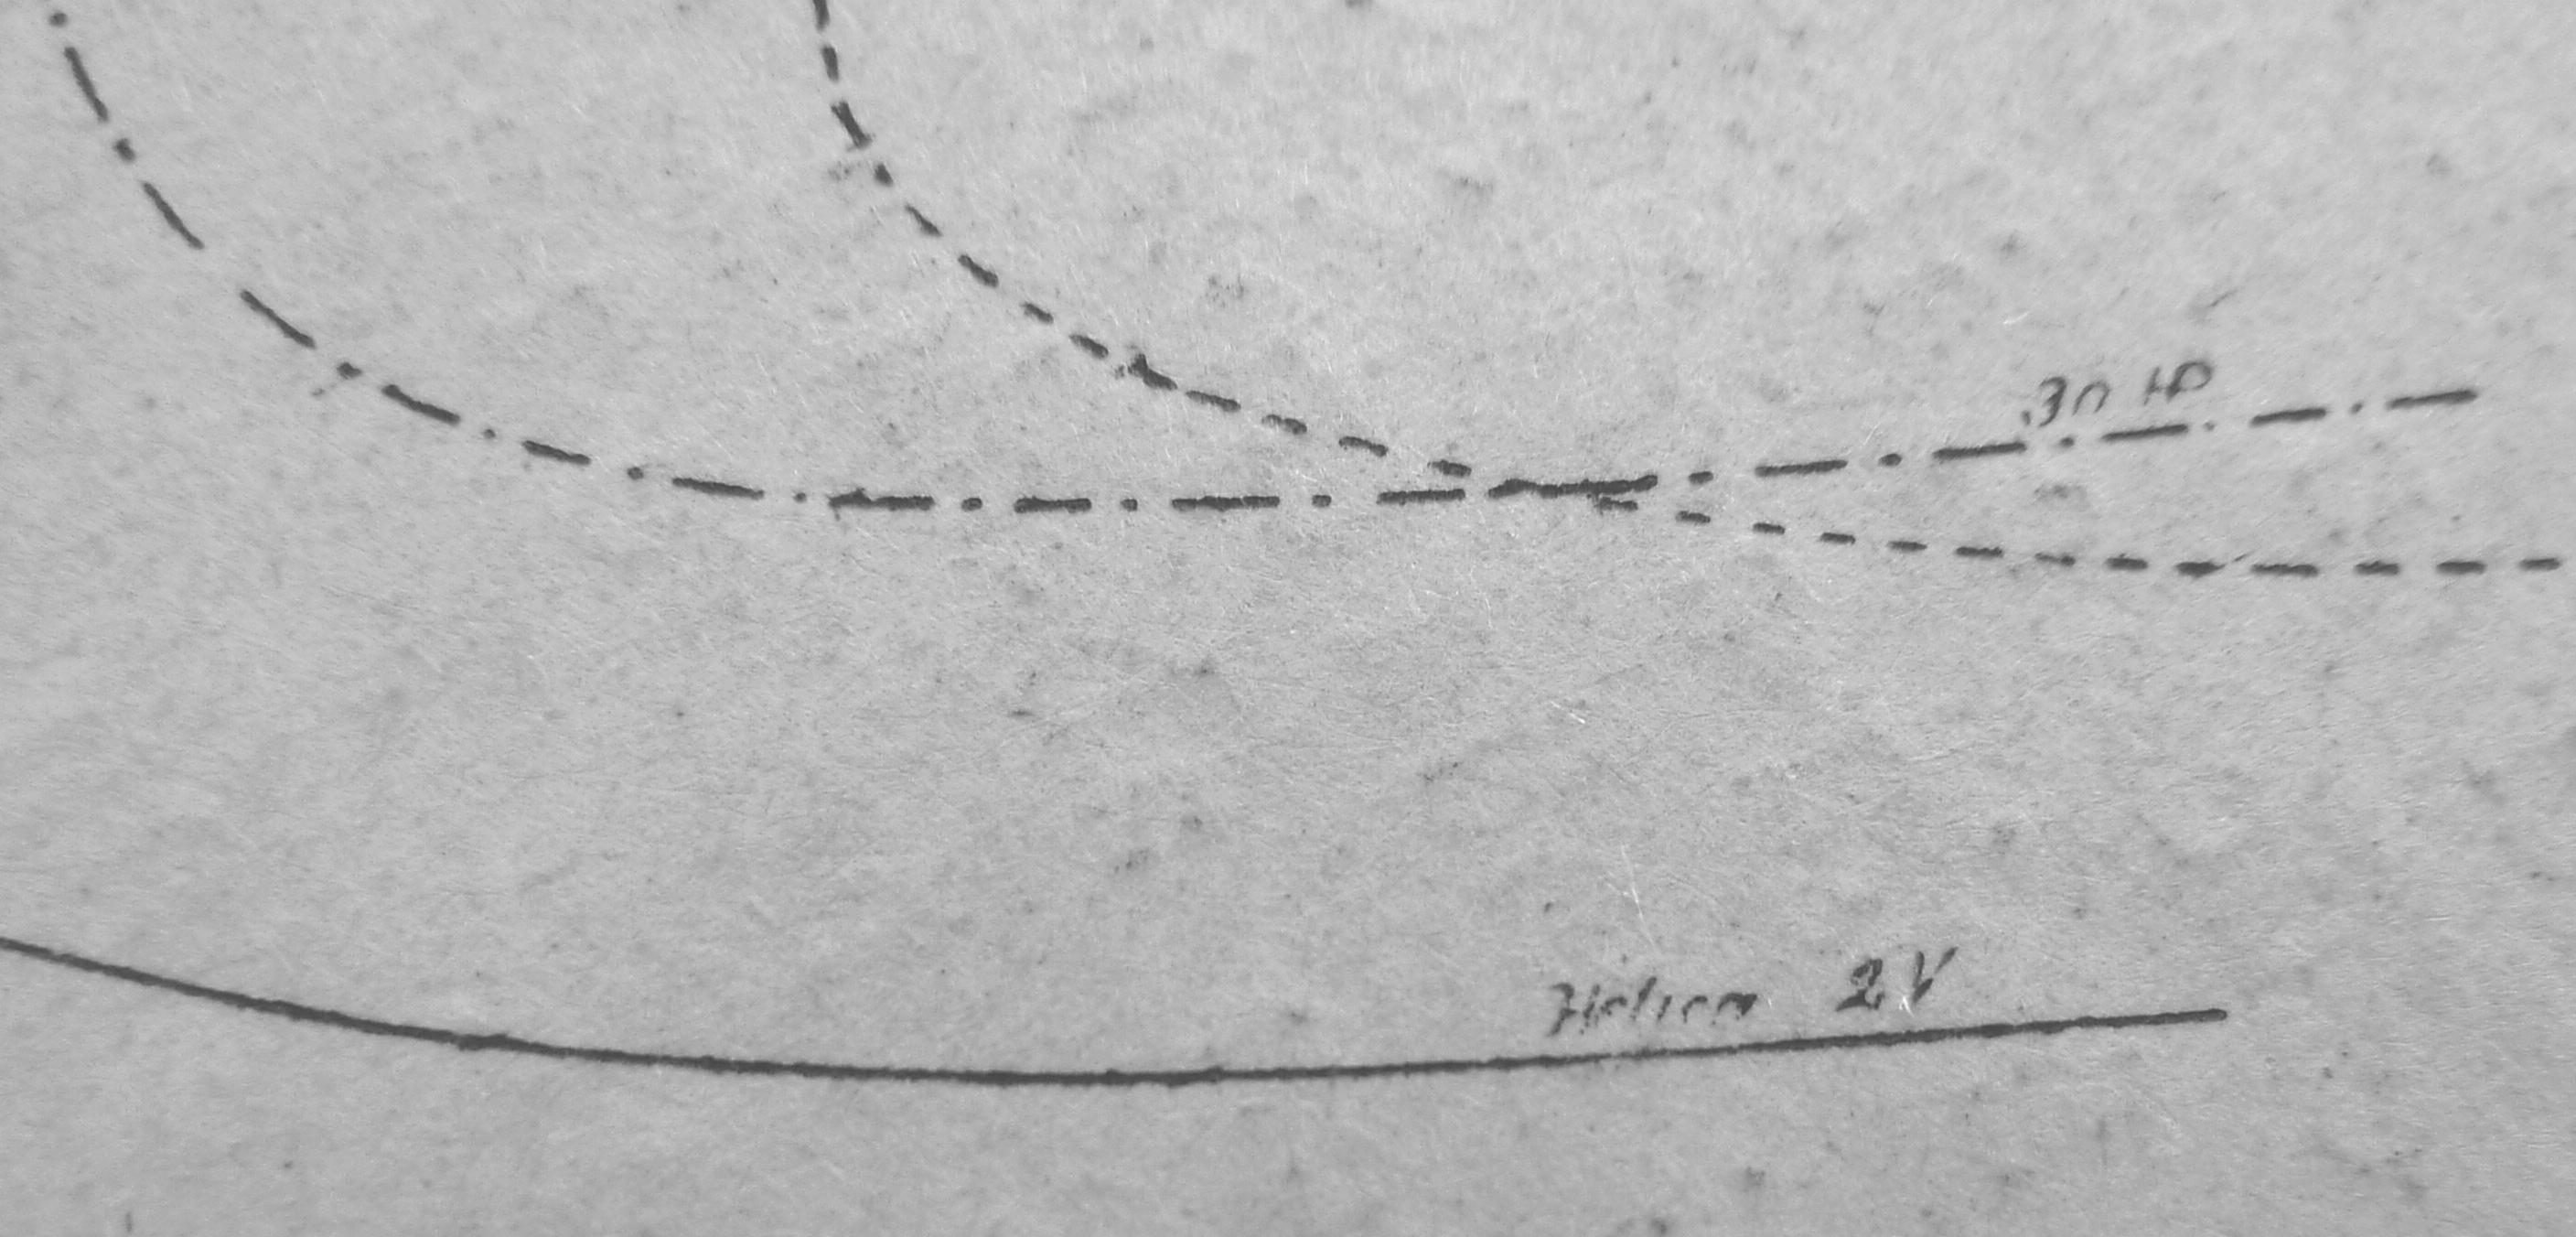 30 HP
Helica 2V